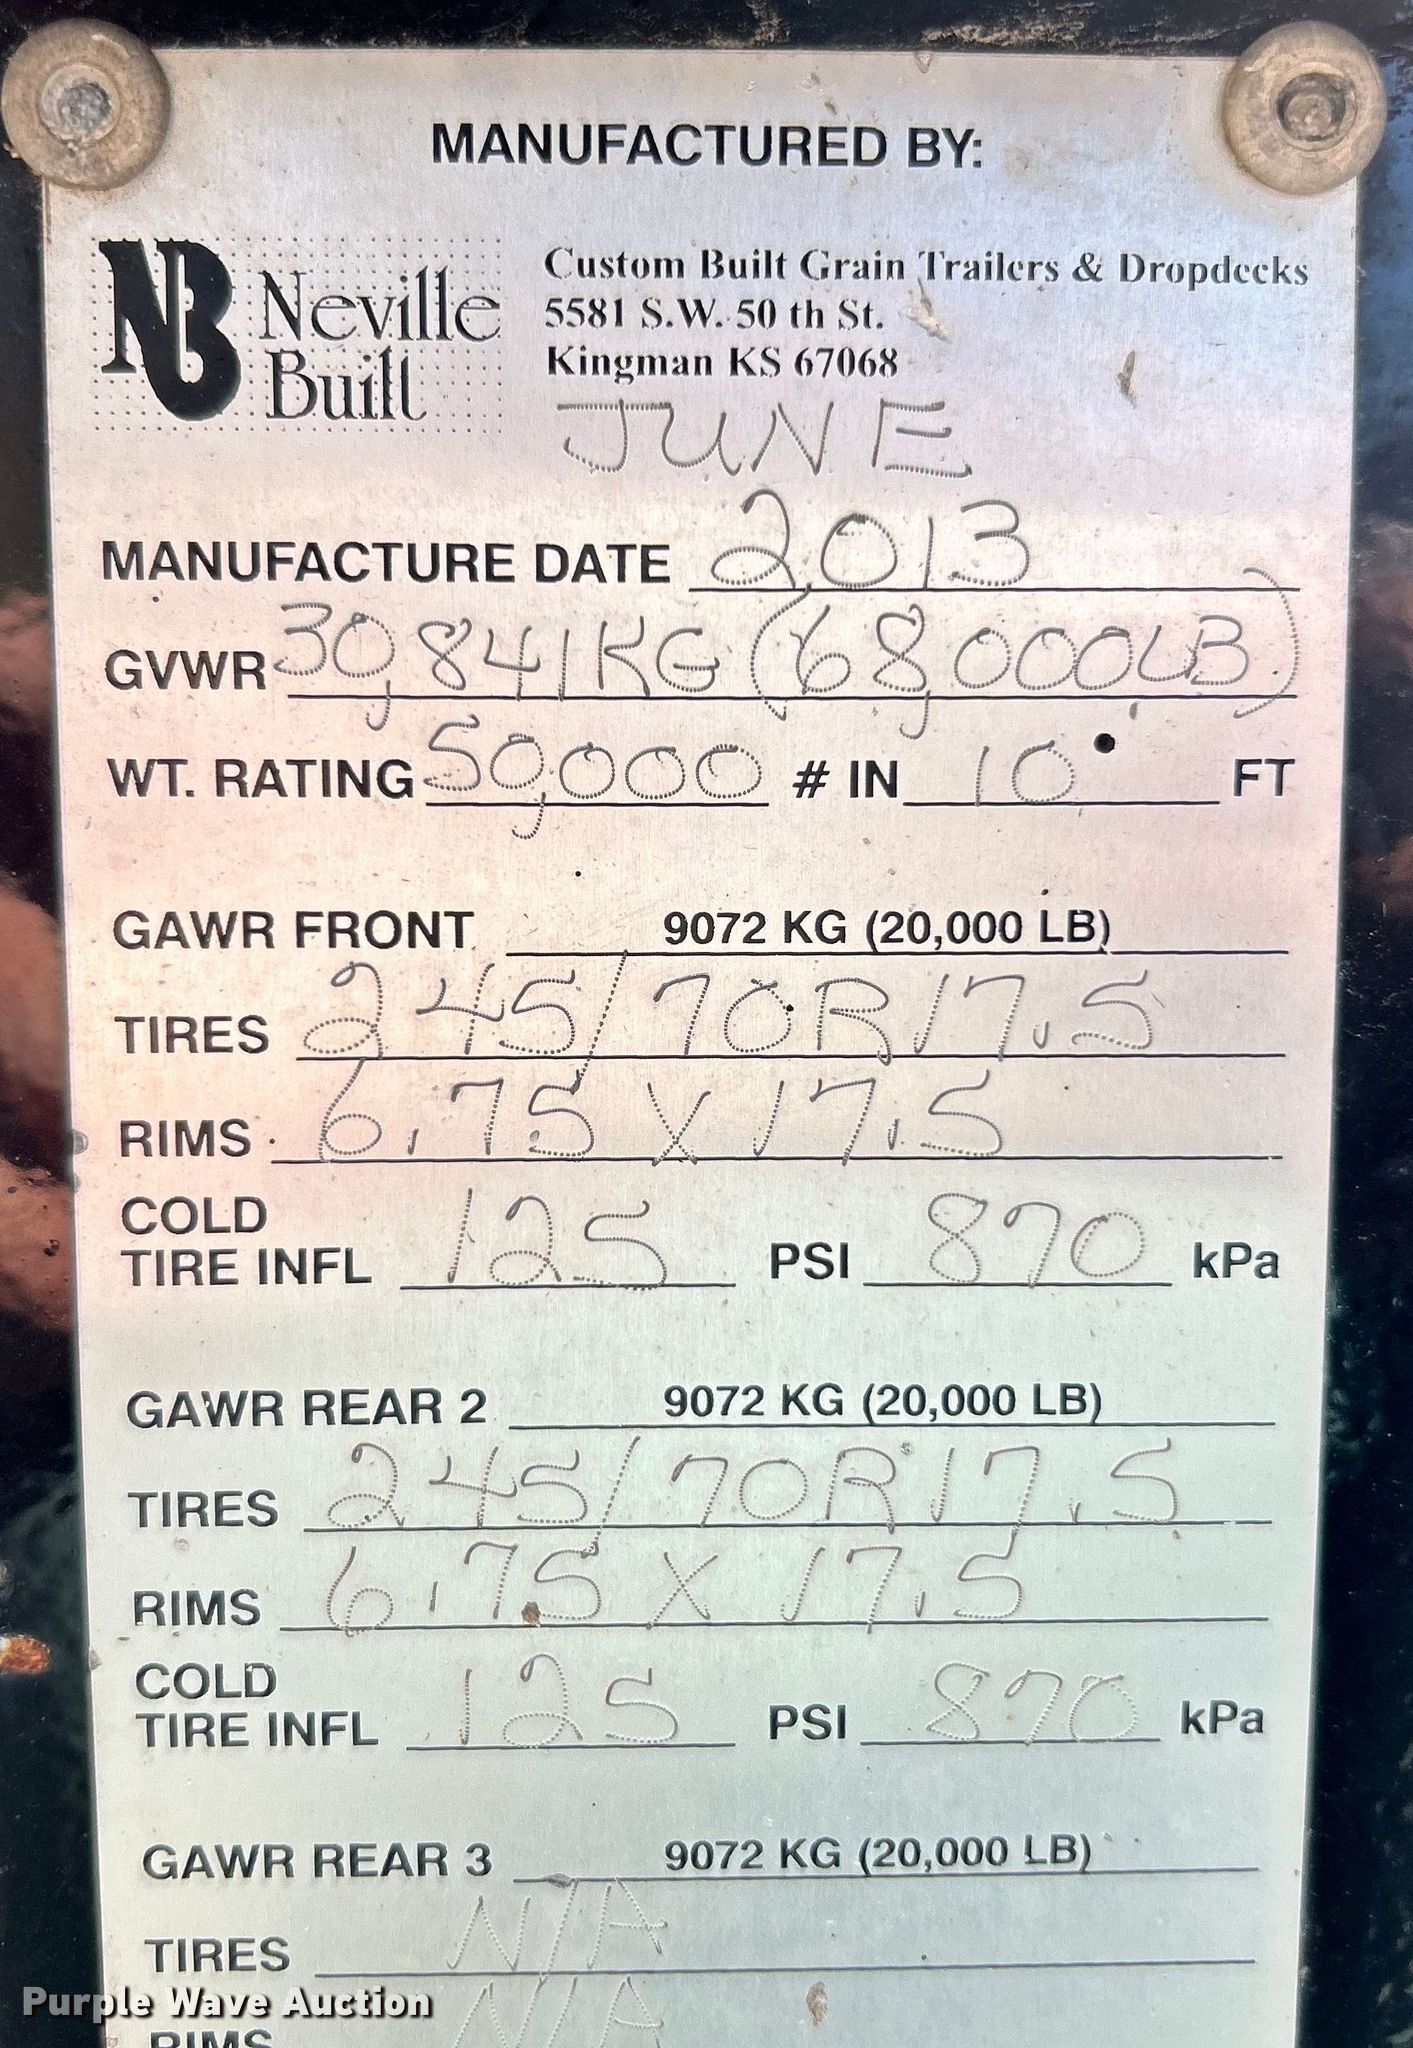 MANUFACTURED BY:
NB Neville Built
Custom Built Grain Trailers & Dropdecks
5581 S.W. 50 th St.
Kingman KS 67068
JUNE
MANUFACTURE DATE 2013
GVWR 30,841KG (68,000LB)
WT. RATING 50,000 # IN 10 FT
GAWR FRONT 9072 KG (20,000 LB)
TIRES 245/70R17.5
RIMS 6.75 X 17.5
COLD
TIRE INFL 125 PSI 870 kPa
GAWR REAR 2 9072 KG (20,000 LB)
TIRES 245/70R17.5
RIMS 6.75 X 17.5
COLD
TIRE INFL 125 PSI 870 kPa
GAWR REAR 3 9072 KG (20,000 LB)
TIRES N/A
RIMS N/A
Purple Wave Auction